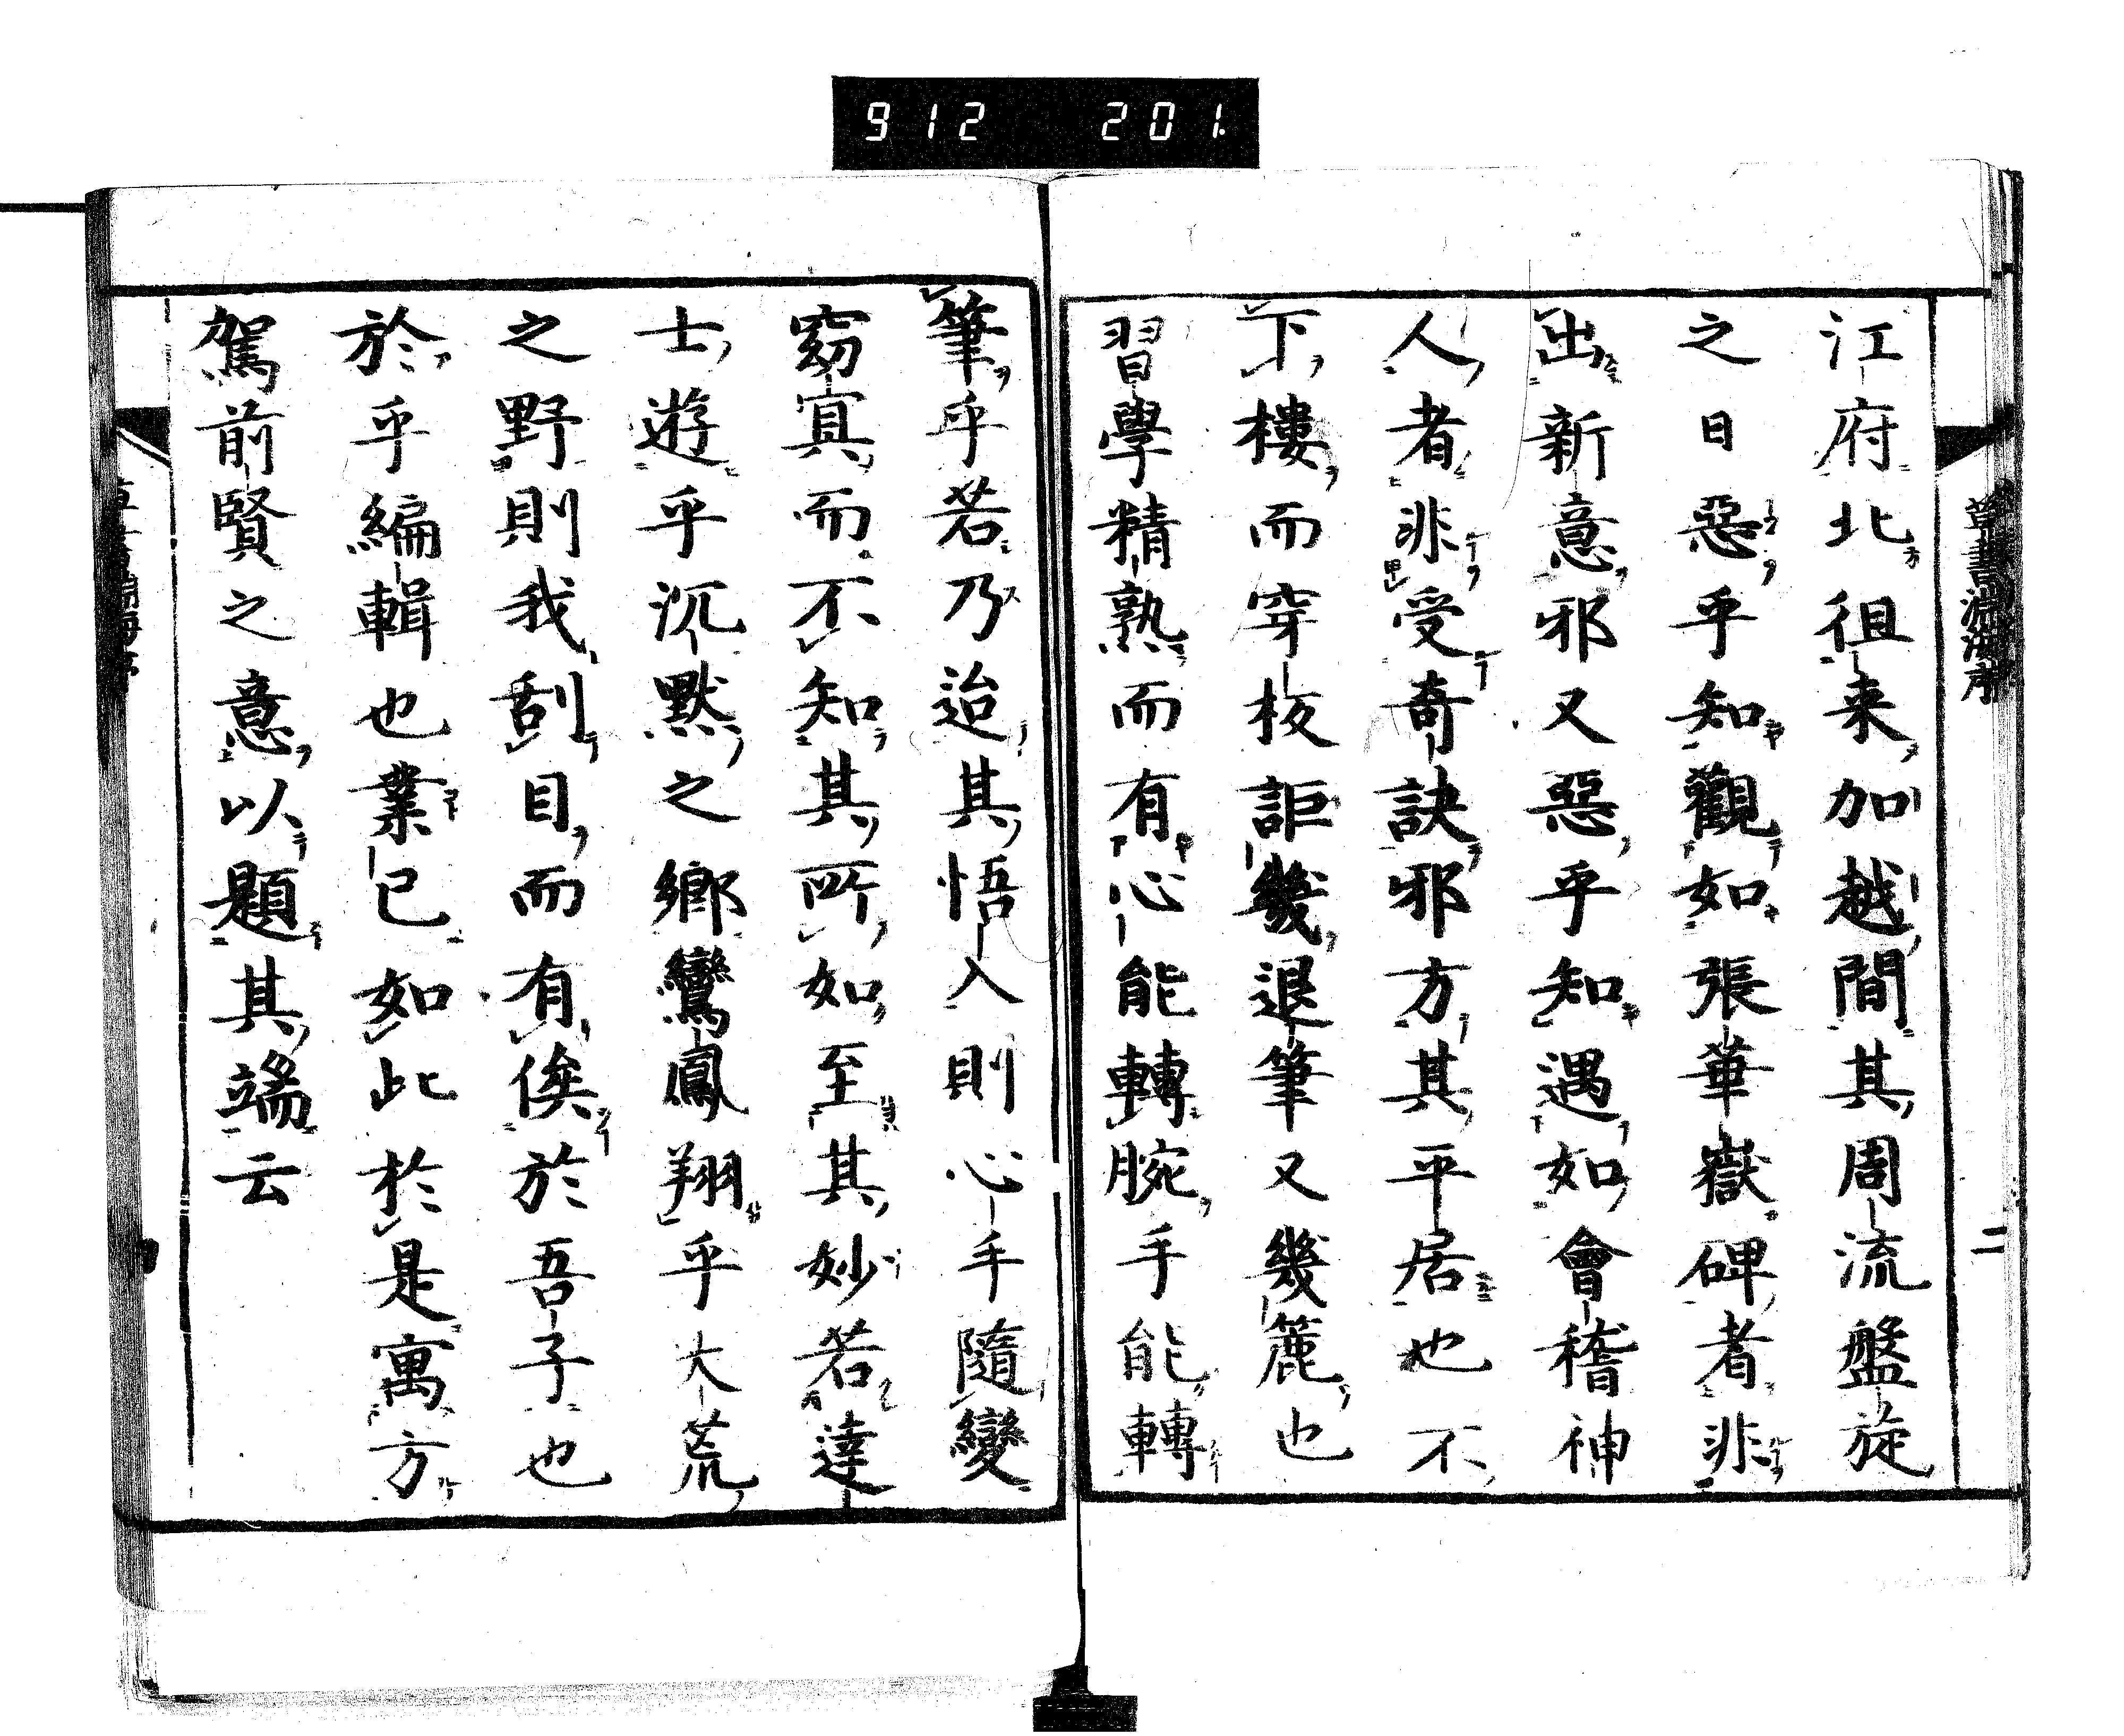 912 201.
草書淵海序
二
江府北徂来加越間其周流盤旋
之日惡乎知觀如張華嶽碑者非
出新意邪又惡乎知遇如會稽神
人者非受奇訣邪方其平居也不
下樓而穿板詎幾退筆又幾簏也
習學精熟而有心能轉腕手能轉
筆乎若乃迨其悟入則心手隨變
窈寘而不知其所如至其妙若達
士遊乎沉默之鄉鸞鳳翔乎大荒
之野則我刮目而有俟於吾子也
於乎編輯也業已如此於是寓方
駕前賢之意以題其端云